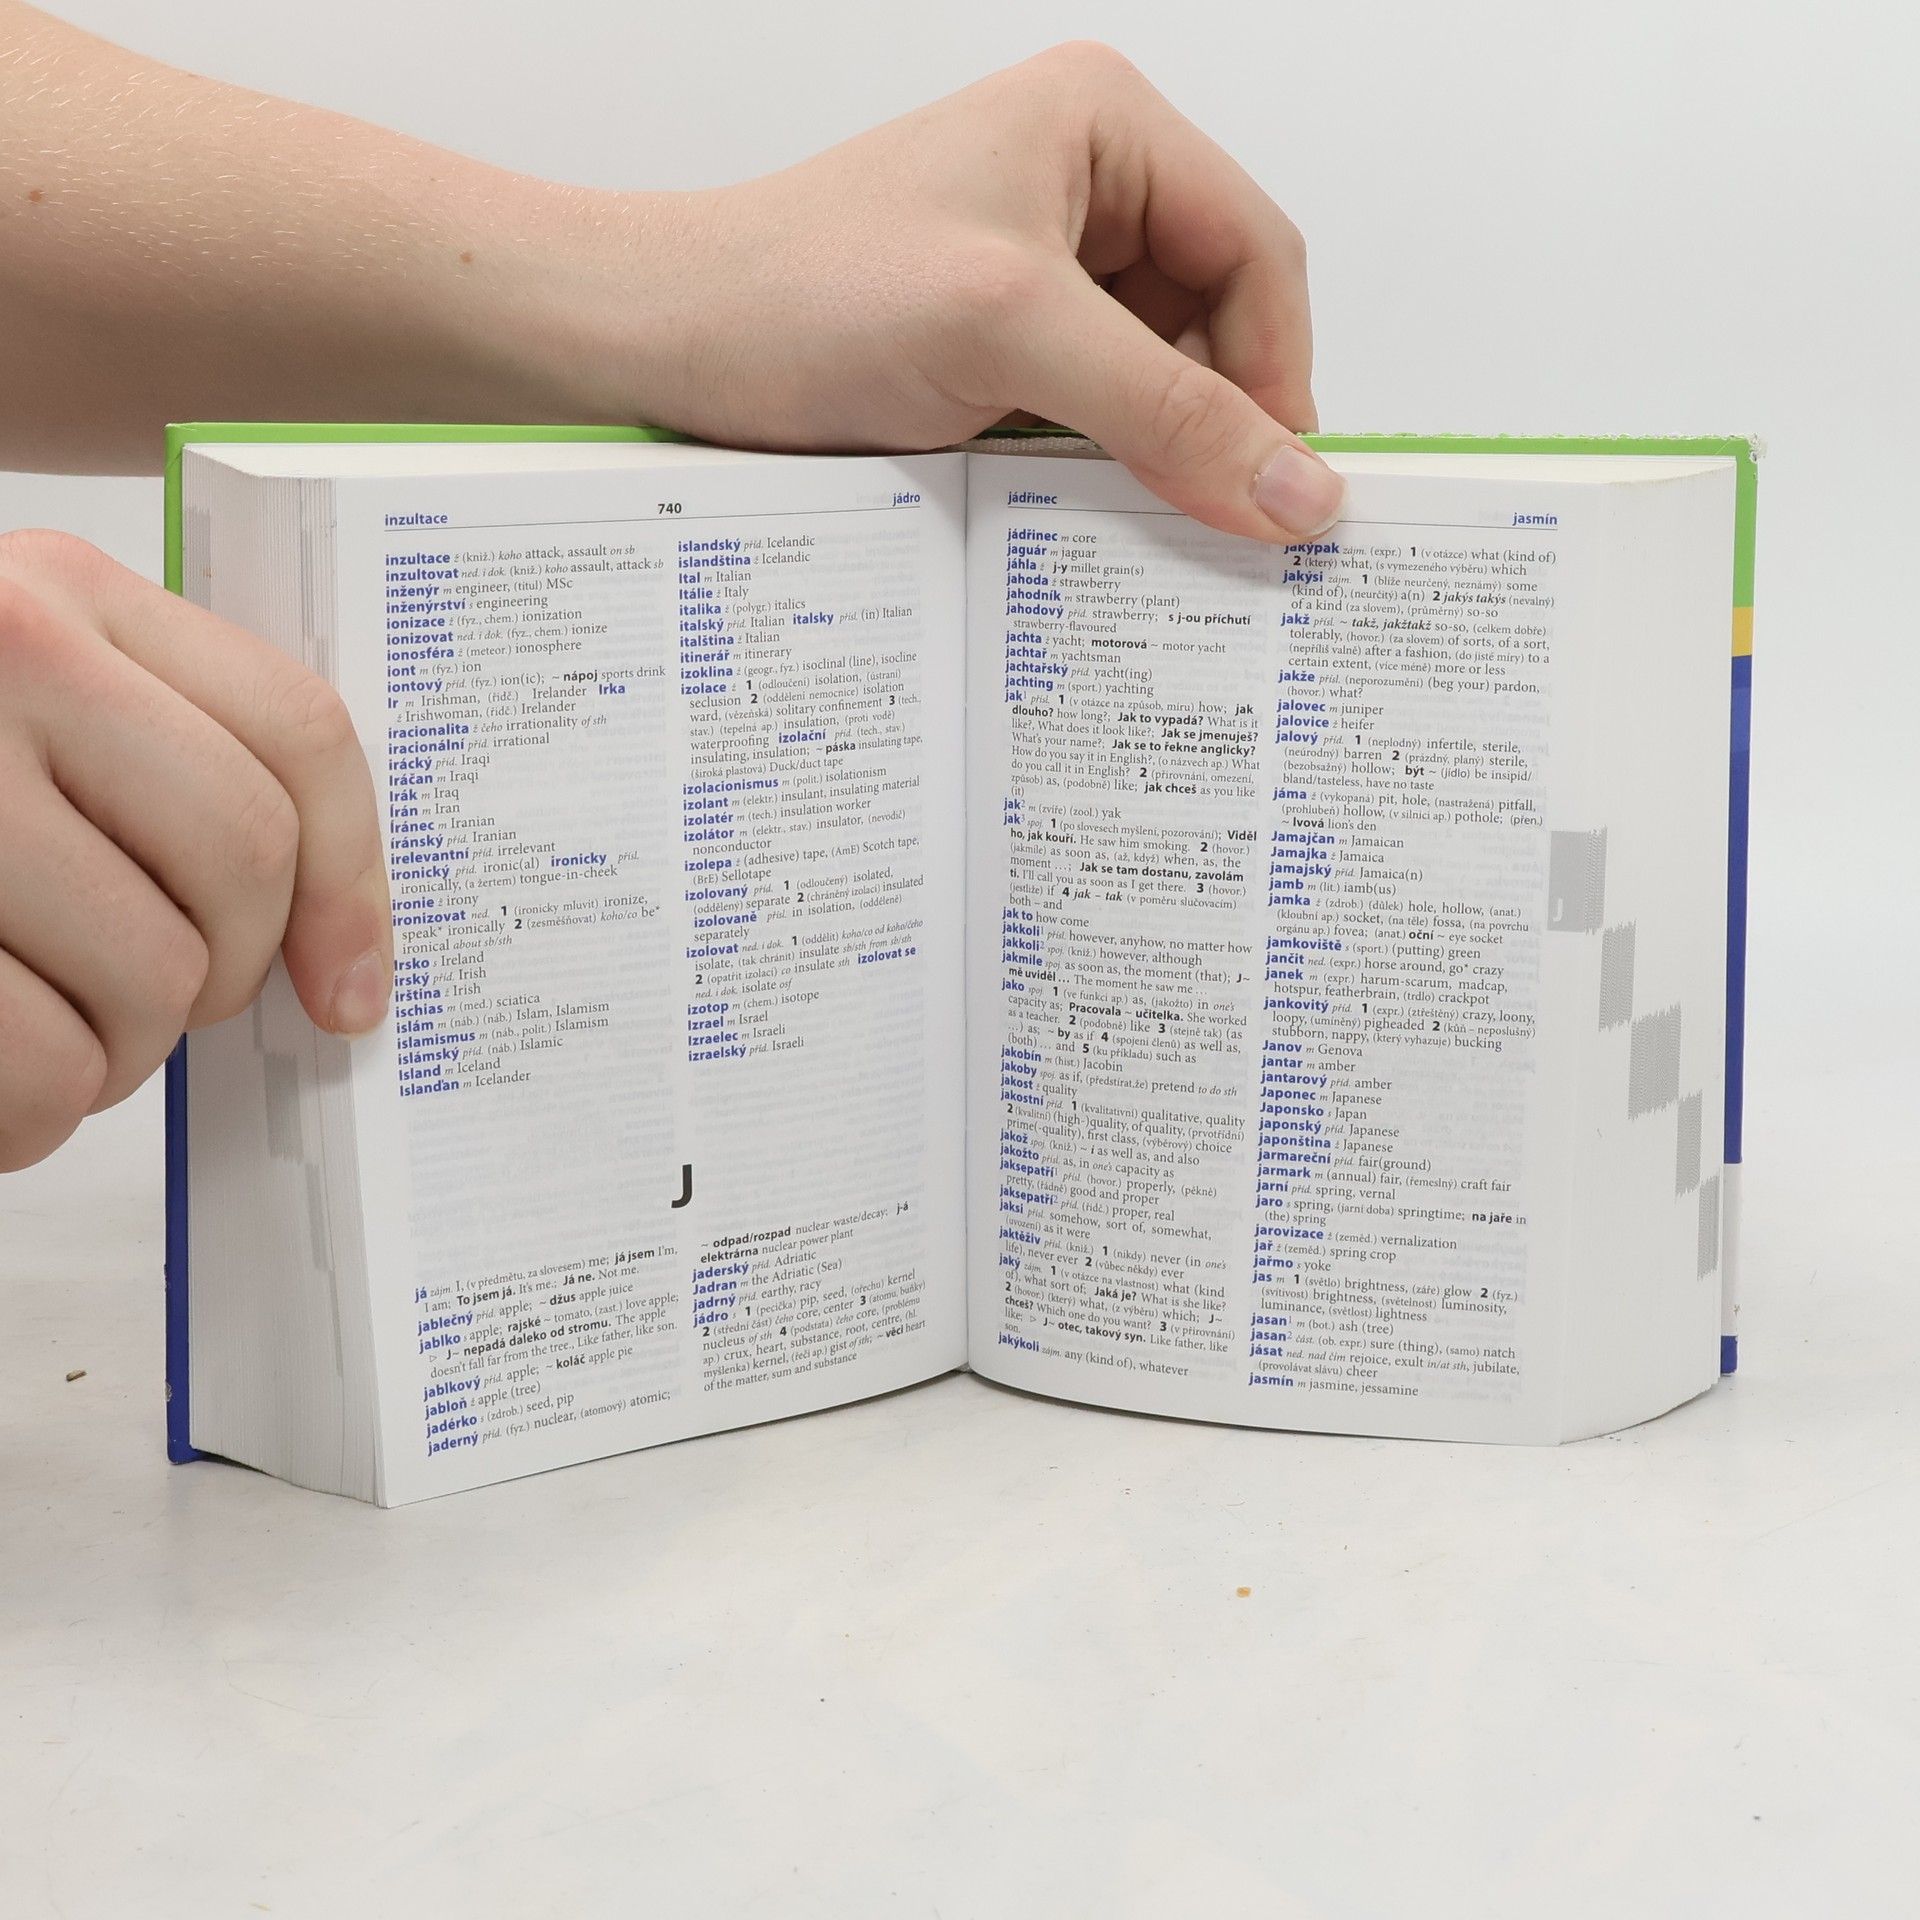 inzultace 740 jádro
inzultace ž (kniž.) koho attack, assault on sb
inzultovat ned. i dok. (kniž.) koho assault, attack sb
inženýr m engineer, (titul) MSc
inženýrství s engineering
ionizace ž (fyz., chem.) ionization
ionizovat ned. i dok. (fyz., chem.) ionize
ionosféra ž (meteor.) ionosphere
iont m (fyz.) ion
iontový příd. (fyz.) ion(ic); ~ nápoj sports drink
Ir m Irishman, (řidč.) Irelander Irka
ž Irishwoman, (řidč.) Irelander
iracionalita ž čeho irrationality of sth
iracionální příd. irrational
irácký příd. Iraqi
Iráčan m Iraqi
Irák m Iraq
Írán m Iran
Íránec m Iranian
íránský příd. Iranian
irelevantní příd. irrelevant
ironický příd. ironic(al) ironicky přísl.
ironically, (a žertem) tongue-in-cheek
ironie ž irony
ironizovat ned. 1 (ironicky mluvit) ironize,
speak* ironically 2 (zesměšňovat) koho/co be*
ironical about sb/sth
Irsko s Ireland
irský příd. Irish
irština ž Irish
ischias m (med.) sciatica
islám m (náb.) (náb.) Islam, Islamism
islamismus m (náb., polit.) Islamism
islámský příd. (náb.) Islamic
Island m Iceland
Islanďan m Icelander
islandský příd. Icelandic
islandština ž Icelandic
Ital m Italian
Itálie ž Italy
italika ž (polygr.) italics
italský příd. Italian italsky přísl. (in) Italian
italština ž Italian
itinerář m itinerary
izoklina ž (geogr., fyz.) isoclinal (line), isocline
izolace ž 1 (odloučení) isolation, (ústraní)
seclusion 2 (oddělení nemocnice) isolation
ward, (vězeňská) solitary confinement 3 (tech.,
stav.) (tepelná ap.) insulation, (proti vodě)
waterproofing izolační příd. (tech., stav.)
insulating, insulation; ~ páska insulating tape,
(široká plastová) Duck/duct tape
izolacionismus m (polit.) isolationism
izolant m (elektr.) insulant, insulating material
izolatér m (tech.) insulation worker
izolátor m (elektr., stav.) insulator, (nevodič)
nonconductor
izolepa ž (adhesive) tape, (AmE) Scotch tape,
(BrE) Sellotape
izolovaný příd. 1 (odloučený) isolated,
(oddělený) separate 2 (chráněný izolací) insulated
izolovaně přísl. in isolation, (odděleně)
separately
izolovat ned. i dok. 1 (oddělit) koho/co od koho/čeho
isolate, (tak chránit) insulate sb/sth from sb/sth
2 (opatřit izolací) co insulate sth izolovat se
ned. i dok. isolate osf
izotop m (chem.) isotope
Izrael m Israel
Izraelec m Israeli
izraelský příd. Israeli
J
já zájm. I, (v předmětu, za slovesem) me; já jsem I'm,
I am; To jsem já. It's me.; Já ne. Not me.
jablečný příd. apple; ~ džus apple juice
jablko s apple; rajské ~ tomato, (zast.) love apple;
▷ J~ nepadá daleko od stromu. The apple
doesn't fall far from the tree., Like father, like son.
jablkový příd. apple; ~ koláč apple pie
jabloň ž apple (tree)
jadérko s (zdrob.) seed, pip
jaderný příd. (fyz.) nuclear, (atomový) atomic;
~ odpad/rozpad nuclear waste/decay; j-á
elektrárna nuclear power plant
jaderský příd. Adriatic
Jadran m the Adriatic (Sea)
jadrný příd. earthy, racy
jádro s 1 (pecička) pip, seed, (ořechu) kernel
2 (střední část) čeho core, center 3 (atomu, buňky)
nucleus of sth 4 (podstata) čeho core, (problému
ap.) crux, heart, substance, root, centre, (hl.
myšlenka) kernel, (řeči ap.) gist of sth; ~ věci heart
of the matter, sum and substance
jádřinec jasmín
jádřinec m core
jaguár m jaguar
jáhla ž j-y millet grain(s)
jahoda ž strawberry
jahodník m strawberry (plant)
jahodový příd. strawberry; s j-ou příchutí
strawberry-flavoured
jachta ž yacht; motorová ~ motor yacht
jachtař m yachtsman
jachtařský příd. yacht(ing)
jachting m (sport.) yachting
jak1 přísl. 1 (v otázce na způsob, míru) how; jak
dlouho? how long?; Jak to vypadá? What is it
like?, What does it look like?; Jak se jmenuješ?
What's your name?; Jak se to řekne anglicky?
How do you say it in English?, (o názvech ap.) What
do you call it in English? 2 (přirovnání, omezení,
způsob) as, (podobně) like; jak chceš as you like
(it)
jak2 m (zvíře) (zool.) yak
jak3 spoj. 1 (po slovesech myšlení, pozorování); Viděl
ho, jak kouří. He saw him smoking. 2 (hovor.)
(jakmile) as soon as, (až, když) when, as, the
moment …; Jak se tam dostanu, zavolám
ti. I'll call you as soon as I get there. 3 (hovor.)
(jestliže) if 4 jak – tak (v poměru slučovacím)
both – and
jak to how come
jakkoli1 přísl. however, anyhow, no matter how
jakkoli2 spoj. (kniž.) however, although
jakmile spoj. as soon as, the moment (that); J~
mě uviděl … The moment he saw me …
jako spoj. 1 (ve funkci ap.) as, (jakožto) in one's
capacity as; Pracovala ~ učitelka. She worked
as a teacher. 2 (podobně) like 3 (stejně tak) (as
…) as; ~ by as if 4 (spojení členů) as well as,
(both) … and 5 (ku příkladu) such as
jakobín m (hist.) Jacobin
jakoby spoj. as if, (předstírat.že) pretend to do sth
jakost ž quality
jakostní příd. 1 (kvalitativní) qualitative, quality
2 (kvalitní) (high-)quality, of quality, (prvotřídní)
prime(-quality), first class, (výběrový) choice
jakož spoj. (kniž.) ~ i as well as, and also
jakožto přísl. as, in one's capacity as
jaksepatří1 přísl. (hovor.) properly, (pěkně)
pretty, (řádně) good and proper
jaksepatří2 příd. (řidč.) proper, real
jaksi přísl. somehow, sort of, somewhat,
(uvození) as it were
jaktěživ přísl. (kniž.) 1 (nikdy) never (in one's
life), never ever 2 (vůbec někdy) ever
jaký zájm. 1 (v otázce na vlastnost) what (kind
of), what sort of; Jaká je? What is she like?
2 (hovor.) (který) what, (z výběru) which; J~
chceš? Which one do you want? 3 (v přirovnání)
like; ▷ J~ otec, takový syn. Like father, like
son.
jakýkoli zájm. any (kind of), whatever
jakýpak zájm. (expr.) 1 (v otázce) what (kind of)
2 (který) what, (s vymezeného výběru) which
jakýsi zájm. 1 (blíže neurčený, neznámý) some
(kind of), (neurčitý) a(n) 2 jakýs takýs (nevalný)
of a kind (za slovem), (průměrný) so-so
jakž přísl. ~ takž, jakžtakž so-so, (celkem dobře)
tolerably, (hovor.) (za slovem) of sorts, of a sort,
(nepříliš valně) after a fashion, (do jisté míry) to a
certain extent, (více méně) more or less
jakže přísl. (neporozumění) (beg your) pardon,
(hovor.) what?
jalovec m juniper
jalovice ž heifer
jalový příd. 1 (neplodný) infertile, sterile,
(neúrodný) barren 2 (prázdný, planý) sterile,
(bezobsažný) hollow; být ~ (jídlo) be insipid/
bland/tasteless, have no taste
jáma ž (vykopaná) pit, hole, (nastražená) pitfall,
(prohlubeň) hollow, (v silnici ap.) pothole; (přen.)
~ lvová lion's den
Jamajčan m Jamaican
Jamajka ž Jamaica
jamajský příd. Jamaica(n)
jamb m (lit.) iamb(us)
jamka ž (zdrob.) (důlek) hole, hollow, (anat.)
(kloubní ap.) socket, (na těle) fossa, (na povrchu
orgánu ap.) fovea; (anat.) oční ~ eye socket
jamkoviště s (sport.) (putting) green
jančit ned. (expr.) horse around, go* crazy
janek m (expr.) harum-scarum, madcap,
hotspur, featherbrain, (trdlo) crackpot
jankovitý příd. 1 (expr.) (ztřeštěný) crazy, loony,
loopy, (umíněný) pigheaded 2 (kůň – neposlušný)
stubborn, nappy, (který vyhazuje) bucking
Janov m Genova
jantar m amber
jantarový příd. amber
Japonec m Japanese
Japonsko s Japan
japonský příd. Japanese
japonština ž Japanese
jarmareční příd. fair(ground)
jarmark m (annual) fair, (řemeslný) craft fair
jarní příd. spring, vernal
jaro s spring, (jarní doba) springtime; na jaře in
(the) spring
jarovizace ž (zeměd.) vernalization
jař ž (zeměd.) spring crop
jařmo s yoke
jas m 1 (světlo) brightness, (záře) glow 2 (fyz.)
(svítivost) brightness, (světelnost) luminosity,
luminance, (světlost) lightness
jasan1 m (bot.) ash (tree)
jasan2 část. (ob. expr.) sure (thing), (samo) natch
jásat ned. nad čím rejoice, exult in/at sth, jubilate,
(provolávat slávu) cheer
jasmín m jasmine, jessamine
J